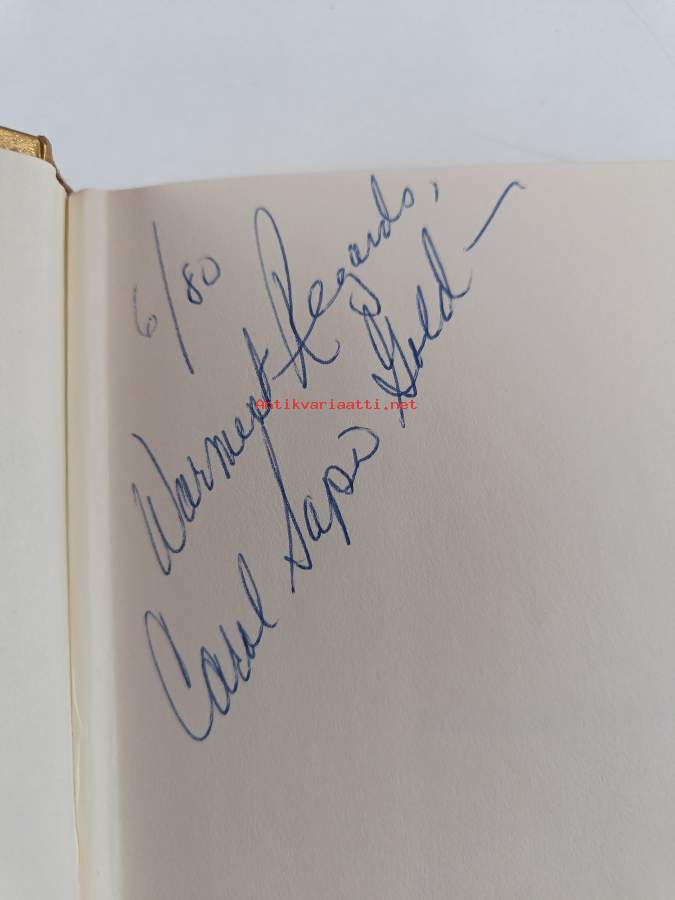 6/80
Warmest Regards,
Carol Sapin Gold
Antikvariaatti.net